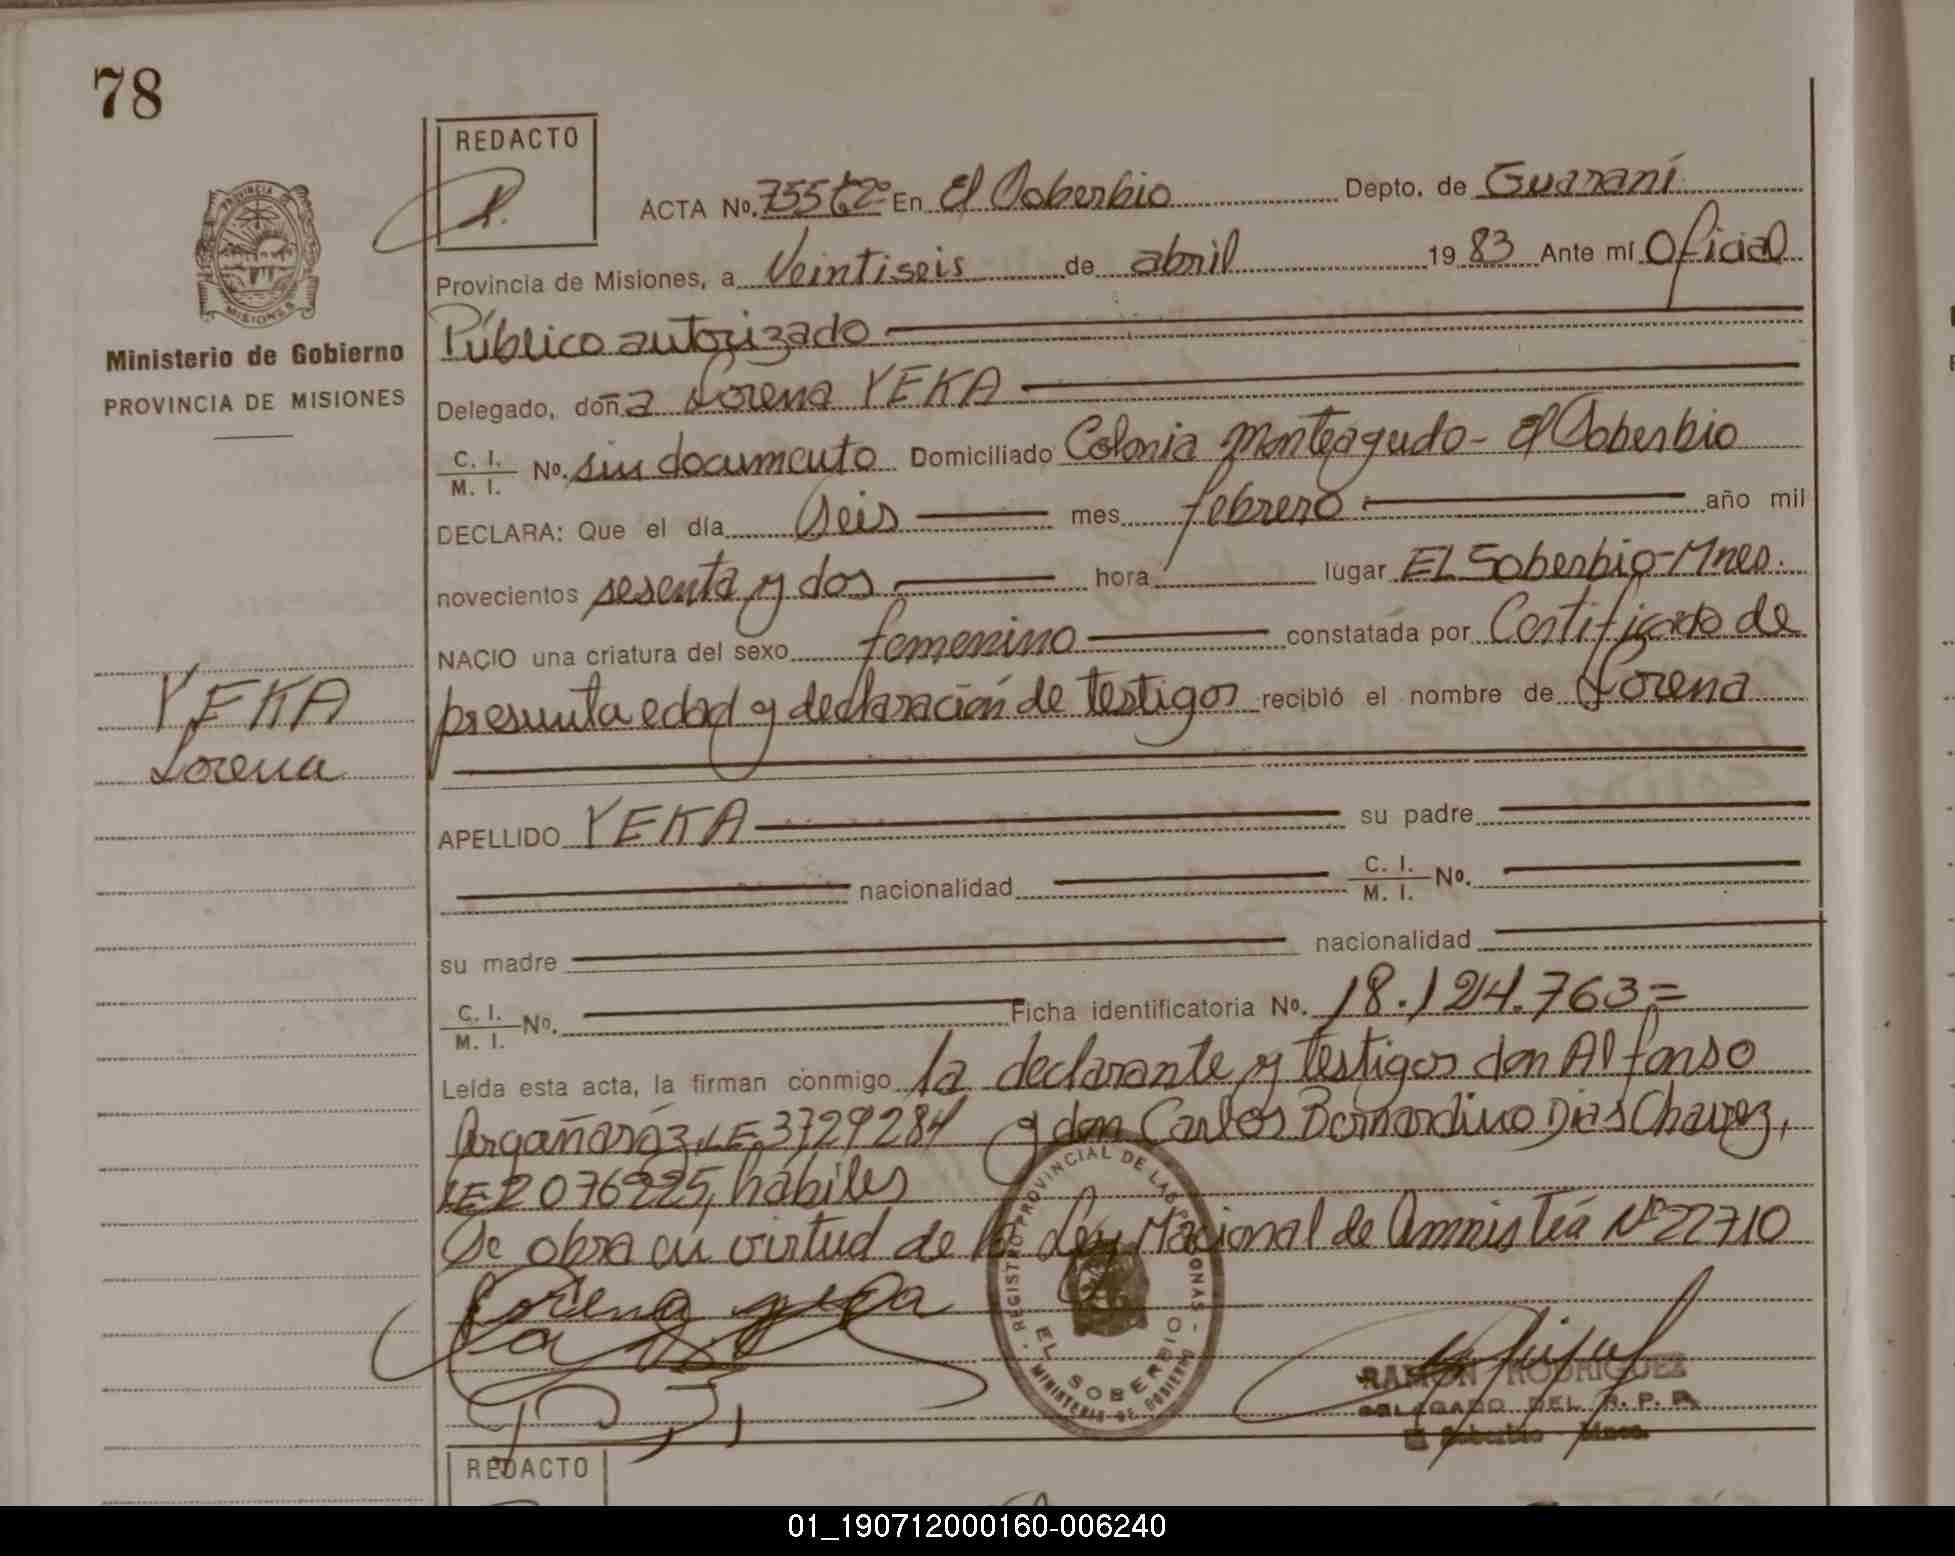 78
REDACTO
ACTA No. 755 t2º En El Soberbio Depto. de Guaraní
PROVINCIA
MISIONES
Provincia de Misiones, a Veintiseis de abril 19 83 Ante mí Oficial
Público autorizado
Ministerio de Gobierno
PROVINCIA DE MISIONES
Delegado, doña Lorena YEKA
C. I.
M. I. No. sin documento Domiciliado Colonia Monteagudo - El Soberbio
DECLARA: Que el día Seis mes febrero año mil
novecientos sesenta y dos hora lugar EL Soberbio-Mnes.
NACIO una criatura del sexo femenino constatada por Certificado de
presunta edad y declaración de testigos recibió el nombre de Lorena
YEKA
Lorena
APELLIDO YEKA su padre
nacionalidad C. I.
M. I. No.
su madre nacionalidad
C. I.
M. I. No. Ficha identificatoria No. 18.124.763=
Leída esta acta, la firman conmigo la declarante y testigos don Alfonso
Argañaráz, LE.3729284 y don Carlos Bernardino Dias Chavez,
LE2076225, hábiles
Se obra en virtud de la Ley Nacional de Amnistía Nº 22710
Lorena yeca
REGISTRO PROVINCIAL DE LAS PERSONAS
EL SOBERBIO
MINISTERIO DE GOBIERNO
RAMON RODRIGUEZ
DELEGADO DEL R. P. P.
El Soberbio - Mnes.
REDACTO
01_190712000160-006240